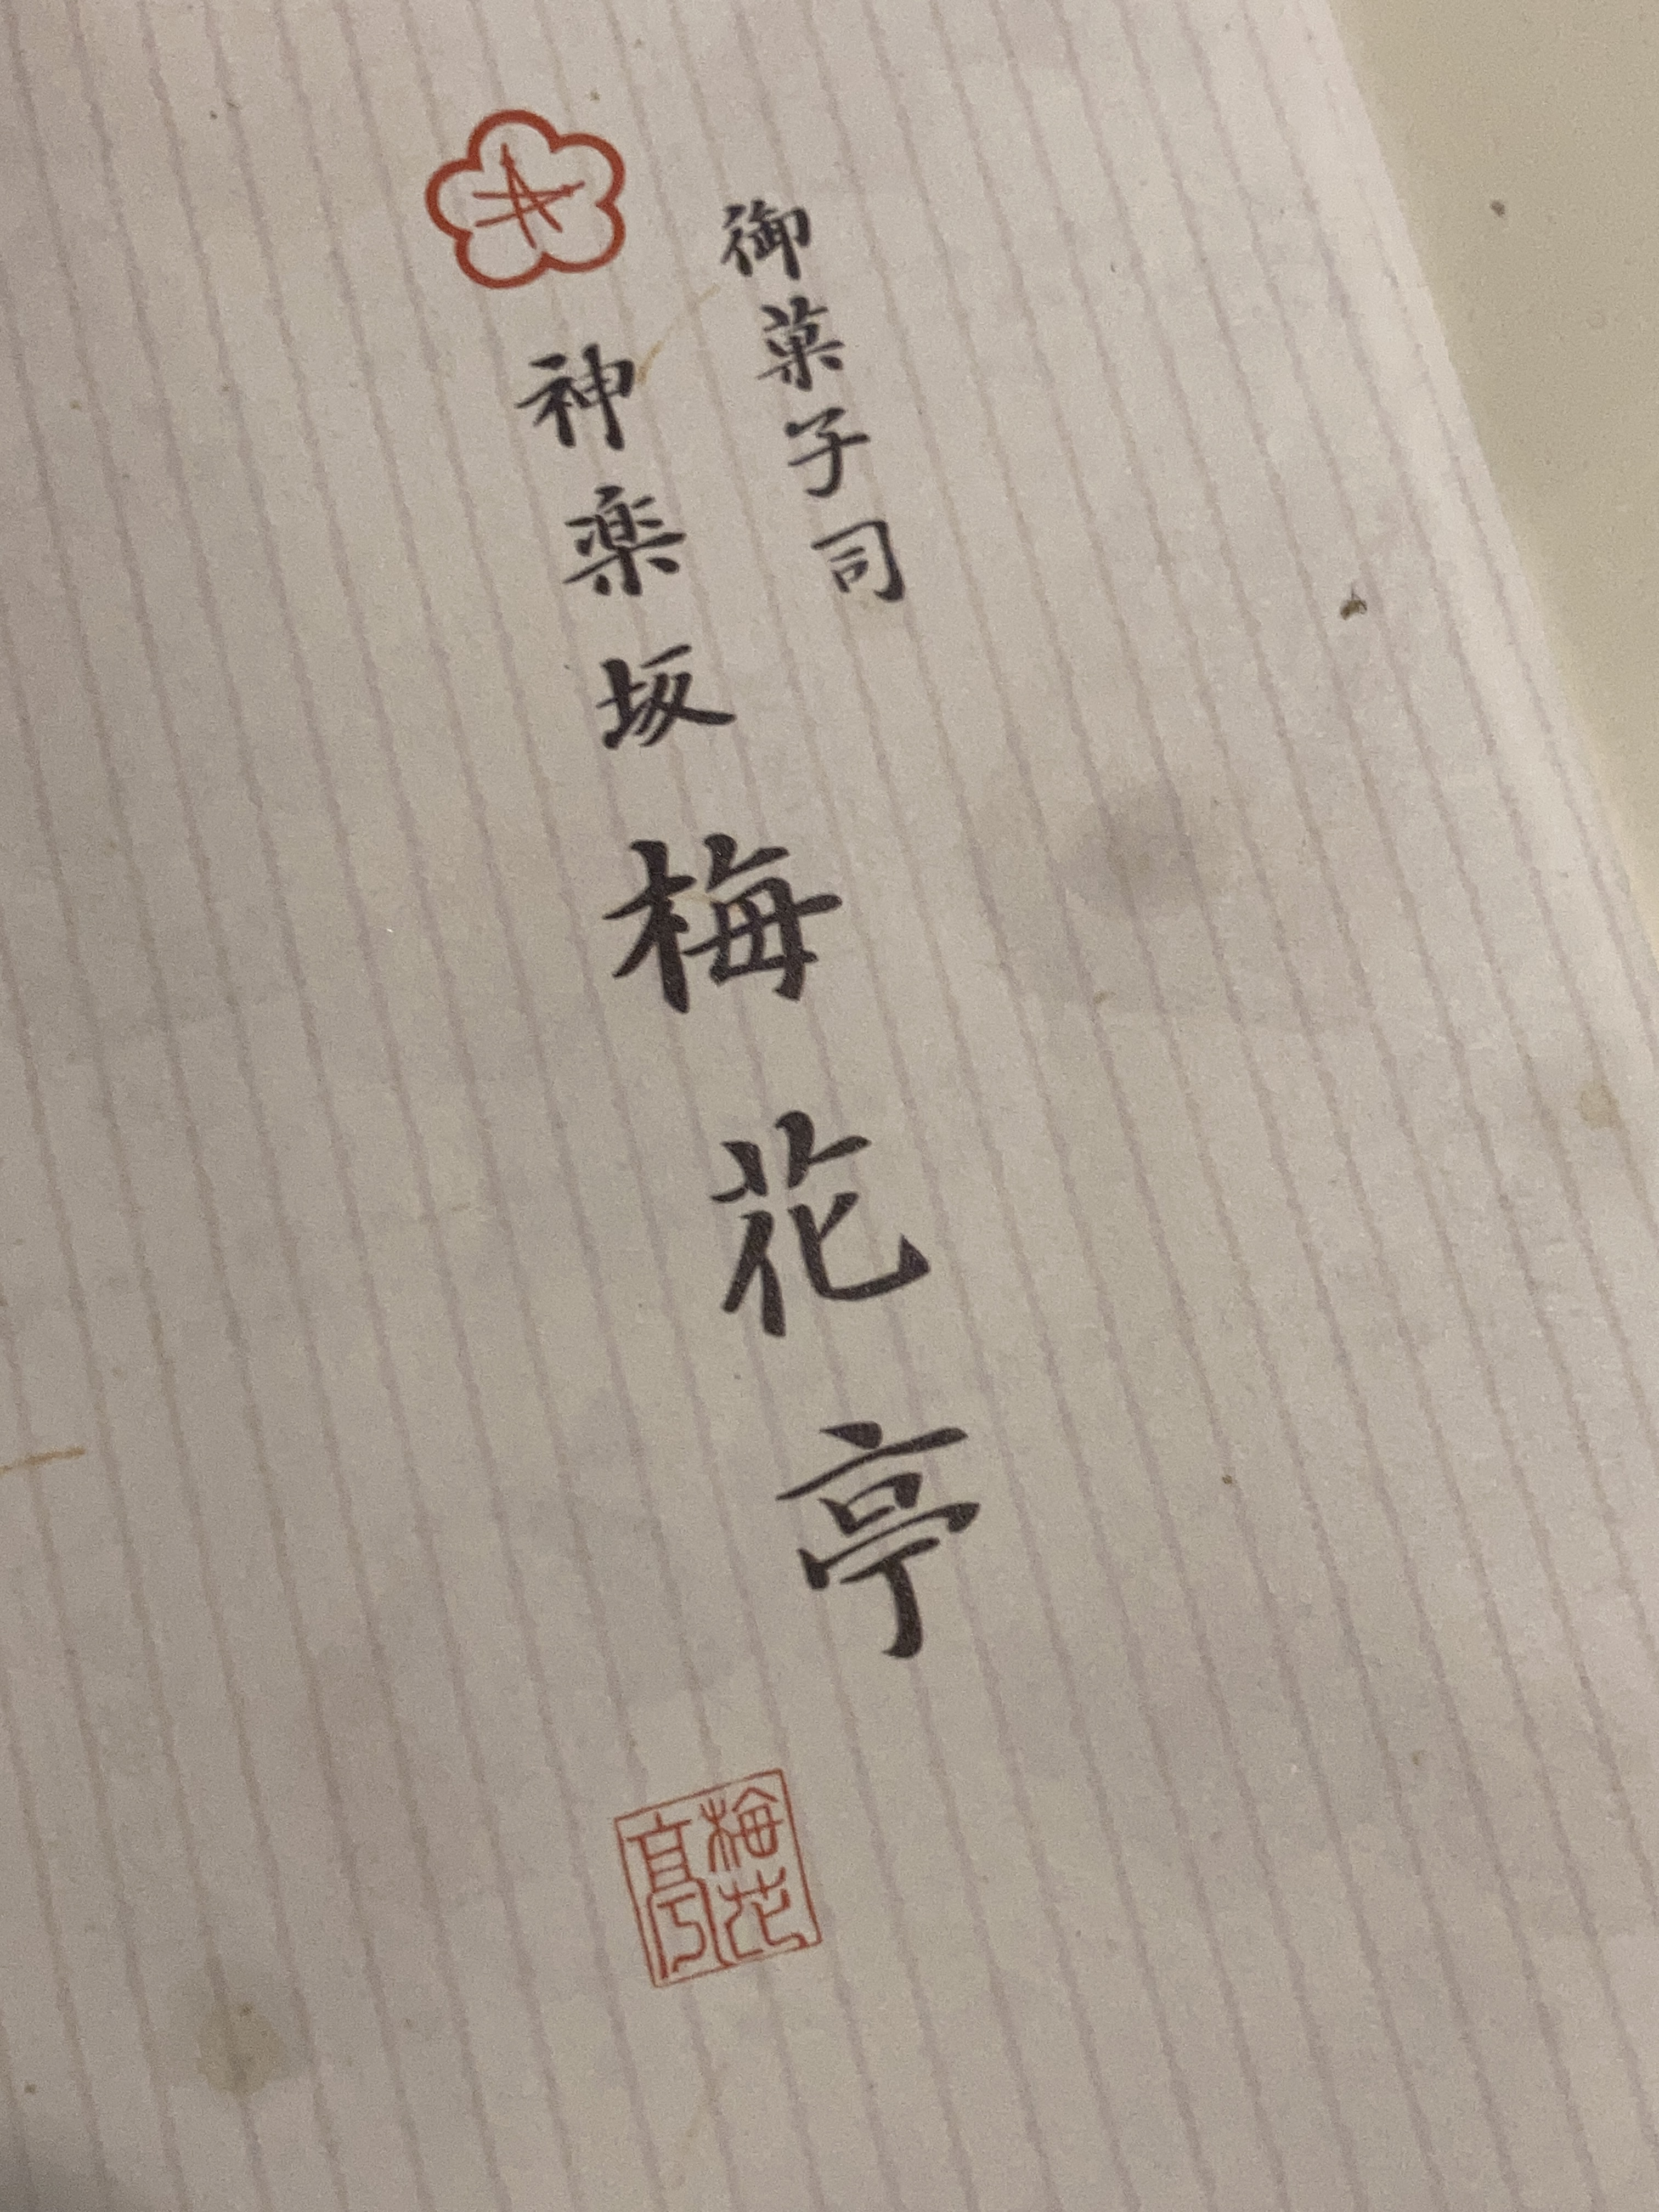 御菓子司
神楽坂梅花亭
梅花亭